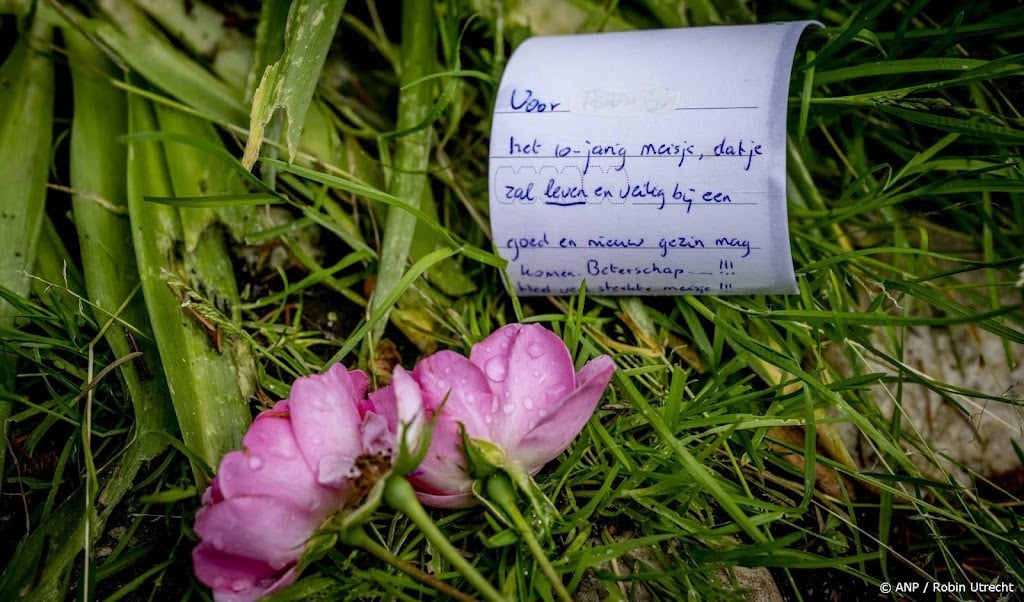 Voor
het 10-jarig meisje, dat je
zal leven en veilig bij een
goed en nieuw gezin mag
komen. Beterschap !!!
sterkte meisje !!!
© ANP / Robin Utrecht